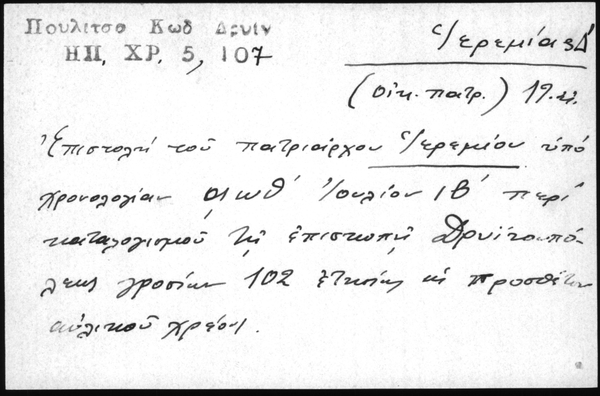 Πουλιτσο Κωδ Δρυϊν
ΗΠ, ΧΡ. 5, 107
Ἱερεμίας Δ'
(οἰκ. πατρ.) 19. αἰ.
Ἐπιστολή τοῦ πατριάρχου Ἱερεμίου ὑπό
χρονολογίαν αωθ' Ἰουλίου ΙΒ' περί
καταλογισμοῦ τῇ ἐπισκοπῇ Δρυϊνουπό-
λεως γροσίων 102 ἐτησίως ὡς προσθέτου
αὐλικοῦ χρέους.